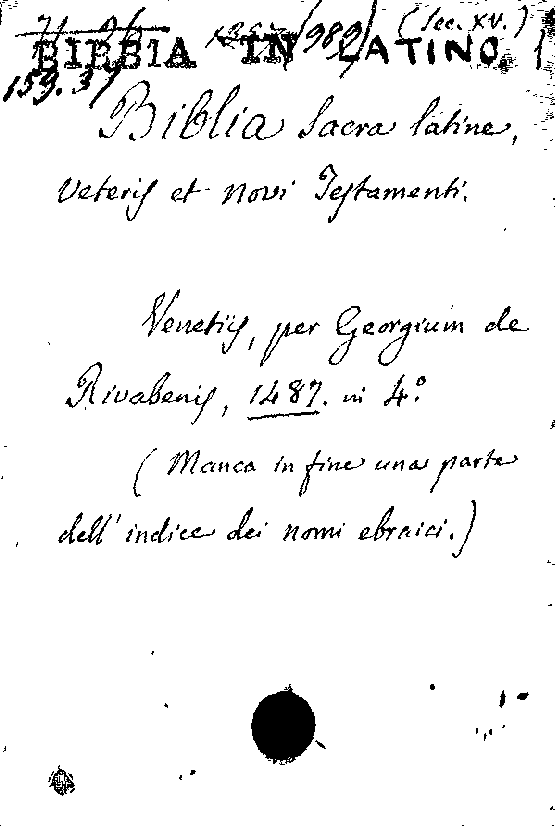 (Sec. XV.)
BIBBIA IN LATINO.
159.37
Biblia Sacra latine,
Veteris et novi Testamenti.
Venetiis, per Georgium de
Rivabenis, 1487. in 4.°
(Manca in fine una parte
dell' indice dei nomi ebraici.)